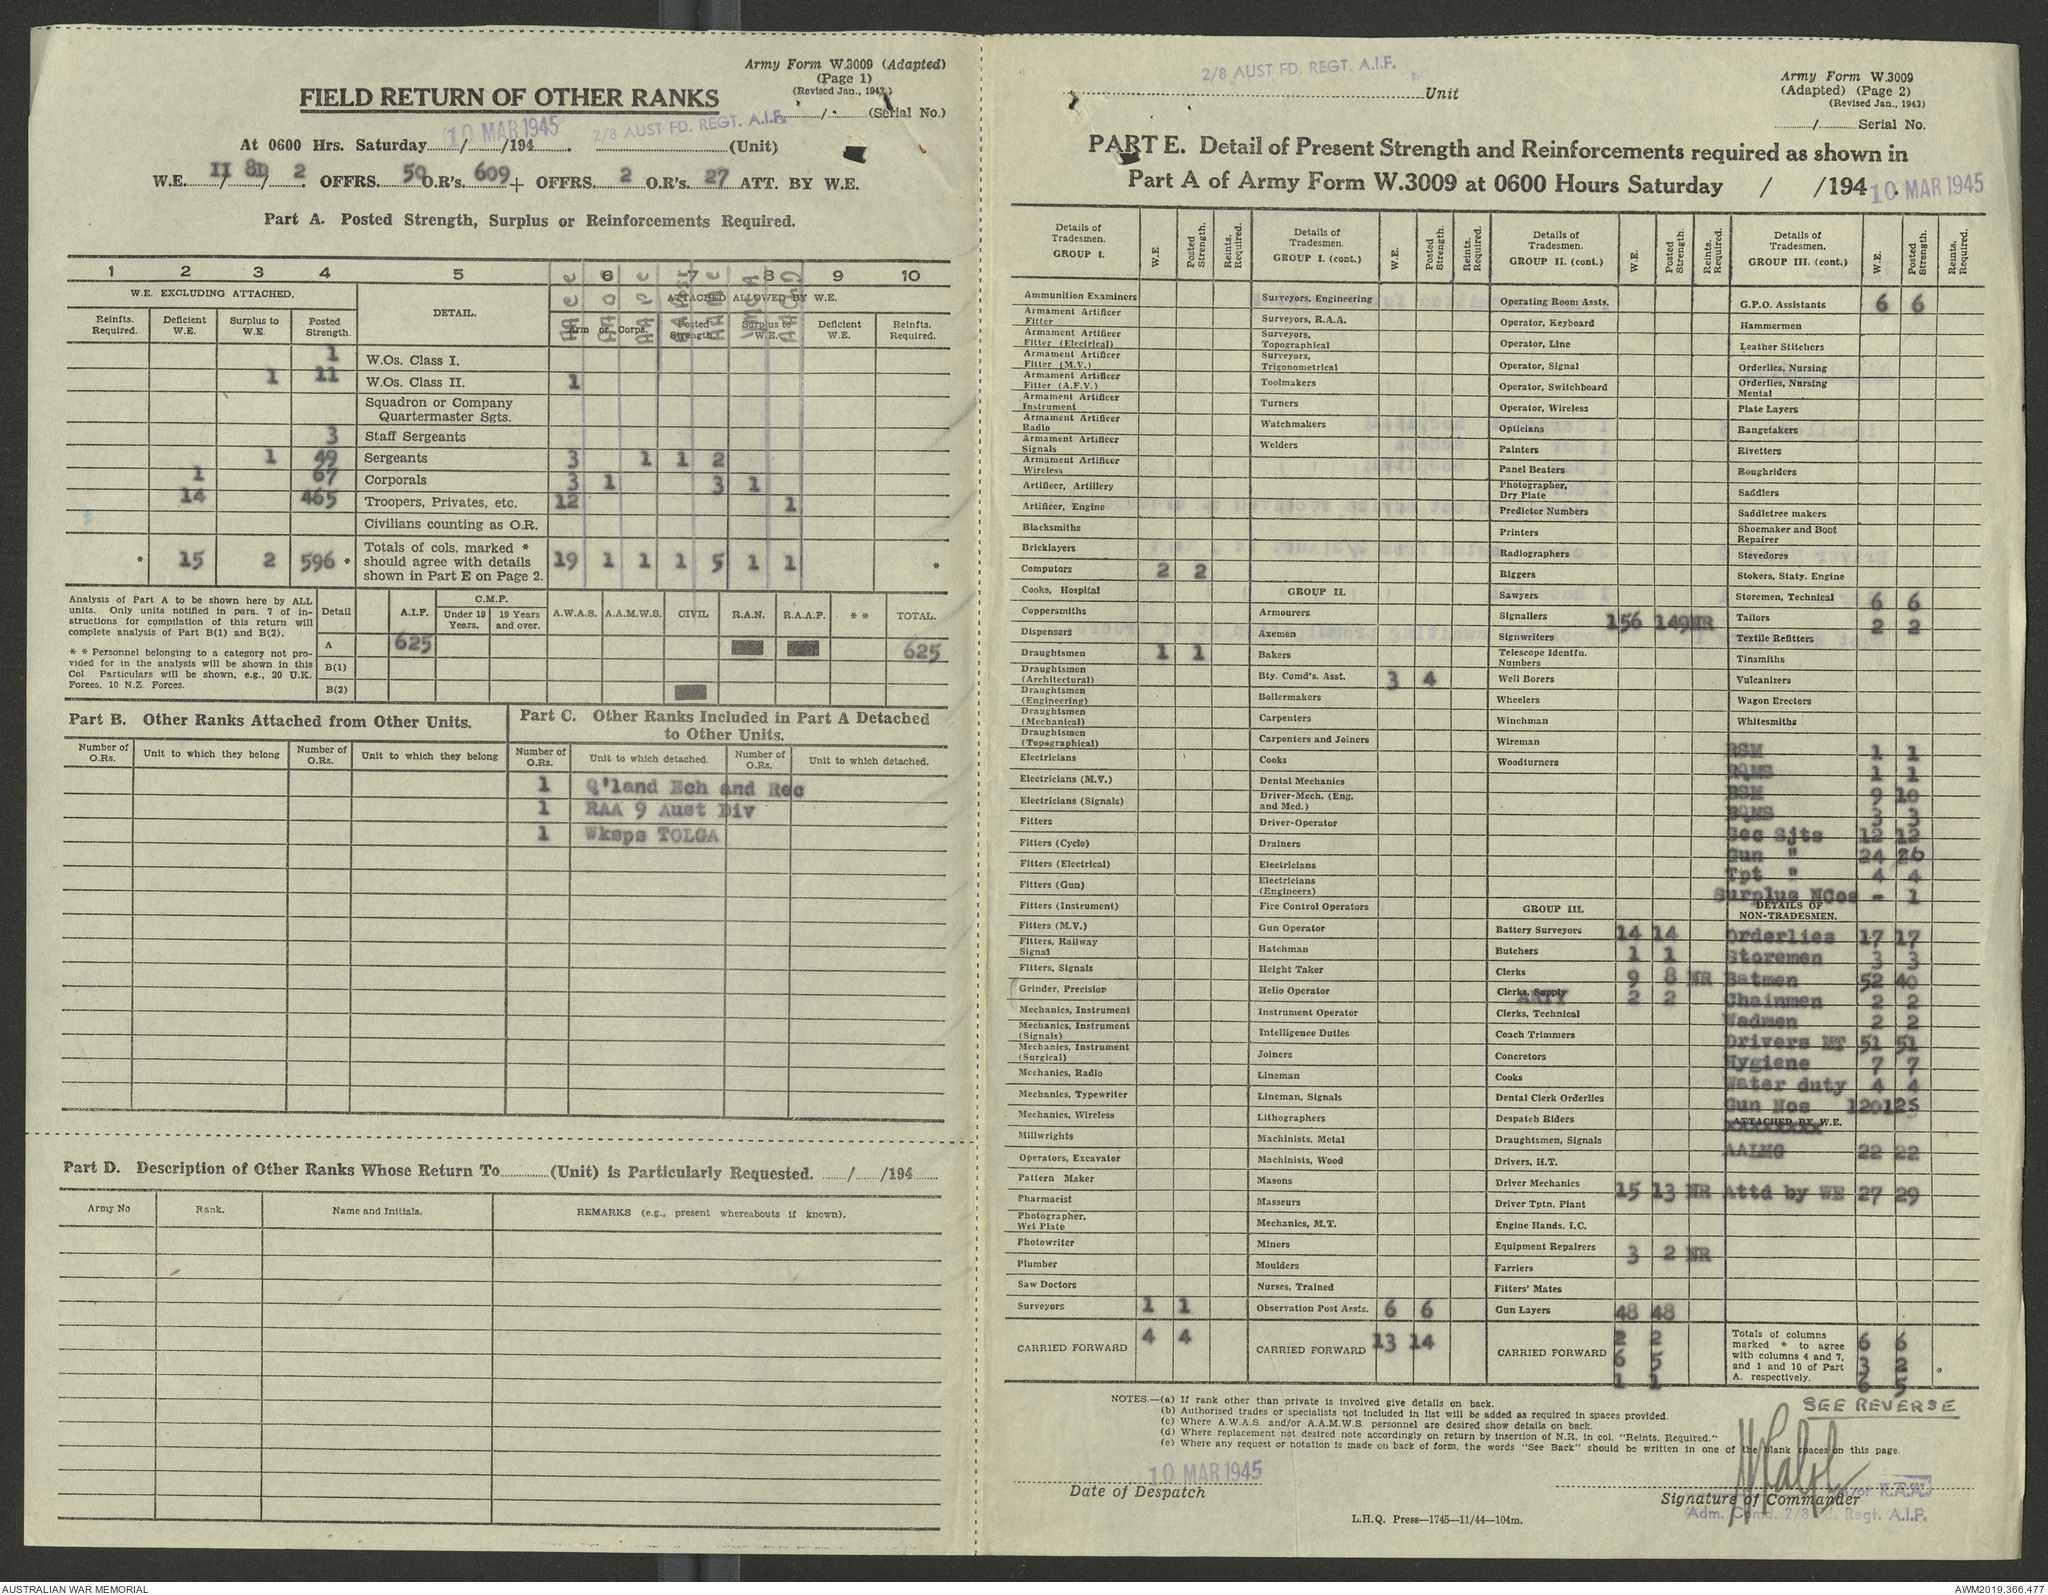 Army Form W.3009 (Adapted)
(Page 1)
(Revised Jan., 1943)
FIELD RETURN OF OTHER RANKS
/ (Serial No.)
At 0600 Hrs. Saturday / /194 . 10 MAR 1945 2/8 AUST FD. REGT. A.I.F. (Unit)
W.E. II / 8D / 2 OFFRS. 50 O.R's. 609 + OFFRS. 2 O.R's. 27 ATT. BY W.E.
Part A. Posted Strength, Surplus or Reinforcements Required.
1 2 3 4 5 6 7 8 9 10
W.E. EXCLUDING ATTACHED. DETAIL. ATTACHED ALLOWED BY W.E.
Reinfts. Required. Deficient W.E. Surplus to W.E. Posted Strength. Arm or Corps. Posted Strength. Surplus to W.E. Deficient W.E. Reinfts. Required.
1 W.Os. Class I.
1 11 W.Os. Class II. 1
Squadron or Company Quartermaster Sgts.
3 Staff Sergeants
1 49 Sergeants 3 1 1 2
1 67 Corporals 3 1 3 1
14 465 Troopers, Privates, etc. 12 1
Civilians counting as O.R.
* 15 2 596 * Totals of cols. marked * should agree with details shown in Part E on Page 2. 19 1 1 1 5 1 1 *
Analysis of Part A to be shown here by ALL units. Only units notified in para. 7 of instructions for compilation of this return will complete analysis of Part B(1) and B(2).
* * Personnel belonging to a category not provided for in the analysis will be shown in this Col. Particulars will be shown, e.g., 20 U.K. Forces, 10 N.Z. Forces.
Detail A.I.F. C.M.F. Under 19 Years. 19 Years and over. A.W.A.S. A.A.M.W.S. CIVIL R.A.N. R.A.A.F. * * TOTAL.
A 625 625
B(1)
B(2)
Part B. Other Ranks Attached from Other Units.
Number of O.Rs. Unit to which they belong Number of O.Rs. Unit to which they belong
Part C. Other Ranks Included in Part A Detached to Other Units.
Number of O.Rs. Unit to which detached. Number of O.Rs. Unit to which detached.
1 Q'land Ech and Rec
1 RAA 9 Aust Div
1 Wksps TOLGA
Part D. Description of Other Ranks Whose Return To (Unit) is Particularly Requested. / /194
Army No Rank. Name and Initials. REMARKS (e.g., present whereabouts if known).
2/8 AUST FD. REGT. A.I.F. Unit
Army Form W.3009
(Adapted) (Page 2)
(Revised Jan., 1943)
/ Serial No.
PART E. Detail of Present Strength and Reinforcements required as shown in
Part A of Army Form W.3009 at 0600 Hours Saturday / /194 . 10 MAR 1945
Details of Tradesmen. GROUP I. W.E. Posted Strength. Reints. Required.
Ammunition Examiners
Armament Artificer Fitter
Armament Artificer Fitter (Electrical)
Armament Artificer Fitter (M.V.)
Armament Artificer Fitter (A.F.V.)
Armament Artificer Instrument
Armament Artificer Radio
Armament Artificer Signals
Armament Artificer Wireless
Artificer, Artillery
Artificer, Engine
Blacksmiths
Bricklayers
Computors 2 2
Cooks, Hospital
Coppersmiths
Dispensers
Draughtsmen 1 1
Draughtsmen (Architectural)
Draughtsmen (Engineering)
Draughtsmen (Mechanical)
Draughtsmen (Topographical)
Electricians
Electricians (M.V.)
Electricians (Signals)
Fitters
Fitters (Cycle)
Fitters (Electrical)
Fitters (Gun)
Fitters (Instrument)
Fitters (M.V.)
Fitters, Railway Signal
Fitters, Signals
Grinder, Precision
Mechanics, Instrument
Mechanics, Instrument (Signals)
Mechanics, Instrument (Surgical)
Mechanics, Radio
Mechanics, Typewriter
Mechanics, Wireless
Millwrights
Operators, Excavator
Pattern Maker
Pharmacist
Photographer, Wet Plate
Photowriter
Plumber
Saw Doctors
Surveyors 1 1
CARRIED FORWARD 4 4
Details of Tradesmen. GROUP I. (cont.) W.E. Posted Strength. Reints. Required.
Surveyors, Engineering
Surveyors, R.A.A.
Surveyors, Topographical
Surveyors, Trigonometrical
Toolmakers
Turners
Watchmakers
Welders
GROUP II.
Armourers
Axemen
Bakers
Bty. Comd's. Asst. 3 4
Boilermakers
Carpenters
Carpenters and Joiners
Cooks
Dental Mechanics
Driver-Mech. (Eng. and Med.)
Driver-Operator
Drainers
Electricians
Electricians (Engineers)
Fire Control Operators
Gun Operator
Hatchman
Height Taker
Helio Operator
Instrument Operator
Intelligence Duties
Joiners
Lineman
Lineman, Signals
Lithographers
Machinists, Metal
Machinists, Wood
Masons
Masseurs
Mechanics, M.T.
Miners
Moulders
Nurses, Trained
Observation Post Assts. 6 6
CARRIED FORWARD 13 14
Details of Tradesmen. GROUP II. (cont.) W.E. Posted Strength. Reints. Required.
Operating Room Assts.
Operator, Keyboard
Operator, Line
Operator, Signal
Operator, Switchboard
Operator, Wireless
Opticians
Painters
Panel Beaters
Photographer, Dry Plate
Predictor Numbers
Printers
Radiographers
Riggers
Sawyers
Signallers 156 149 NR
Signwriters
Telescope Identfn. Numbers
Well Borers
Wheelers
Winchman
Wireman
Woodturners
GROUP III.
Battery Surveyors 14 14
Butchers 1 1
Clerks 9 8 NR
Clerks, Supply ARTY 2 2
Clerks, Technical
Coach Trimmers
Concretors
Cooks
Dental Clerk Orderlies
Despatch Riders
Draughtsmen, Signals
Drivers, H.T.
Driver Mechanics 15 13 NR
Driver Tptn. Plant
Engine Hands, I.C.
Equipment Repairers 3 2 NR
Farriers
Fitters' Mates
Gun Layers 48 48
CARRIED FORWARD 2 2
6 5
1 1
Details of Tradesmen. GROUP III. (cont.) W.E. Posted Strength. Reints. Required.
G.P.O. Assistants 6 6
Hammermen
Leather Stitchers
Orderlies, Nursing
Orderlies, Nursing Mental
Plate Layers
Rangetakers
Rivetters
Roughriders
Saddlers
Saddletree makers
Shoemaker and Boot Repairer
Stevedores
Stokers, Staty. Engine
Storemen, Technical 6 6
Tailors 2 2
Textile Refitters
Tinsmiths
Vulcanizers
Wagon Erectors
Whitesmiths
RSM 1 1
RQMS 1 1
BSM 9 10
BQMS 3 3
Sec Sjts 12 12
Gun " 24 26
Tpt " 4 4
Surplus NCOs - 1
DETAILS OF NON-TRADESMEN.
Orderlies 17 17
Storemen 3 3
Batmen 52 40
Chainmen 2 2
Wadmen 2 2
Drivers MT 51 51
Hygiene 7 7
Water duty 4 4
Gun Nos 120 125
ATTACHED BY W.E.
AALMG 22 22
Attd by WE 27 29
Totals of columns marked * to agree with columns 4 and 7, and 1 and 10 of Part A. respectively. 6 6
3 2
6 5 *
SEE REVERSE
NOTES.—(a) If rank other than private is involved give details on back.
(b) Authorised trades or specialists not included in list will be added as required in spaces provided.
(c) Where A.W.A.S. and/or A.A.M.W.S. personnel are desired show details on back.
(d) Where replacement not desired note accordingly on return by insertion of N.R. in col. "Reints. Required."
(e) Where any request or notation is made on back of form, the words "See Back" should be written in one of the blank spaces on this page.
10 MAR 1945
Date of Despatch
Signature of Commander
Major R.A.A.
Adm. Comd. 2/8 Fd. Regt. A.I.F.
L.H.Q. Press—1745—11/44—104m.
AUSTRALIAN WAR MEMORIAL
AWM2019.366.477